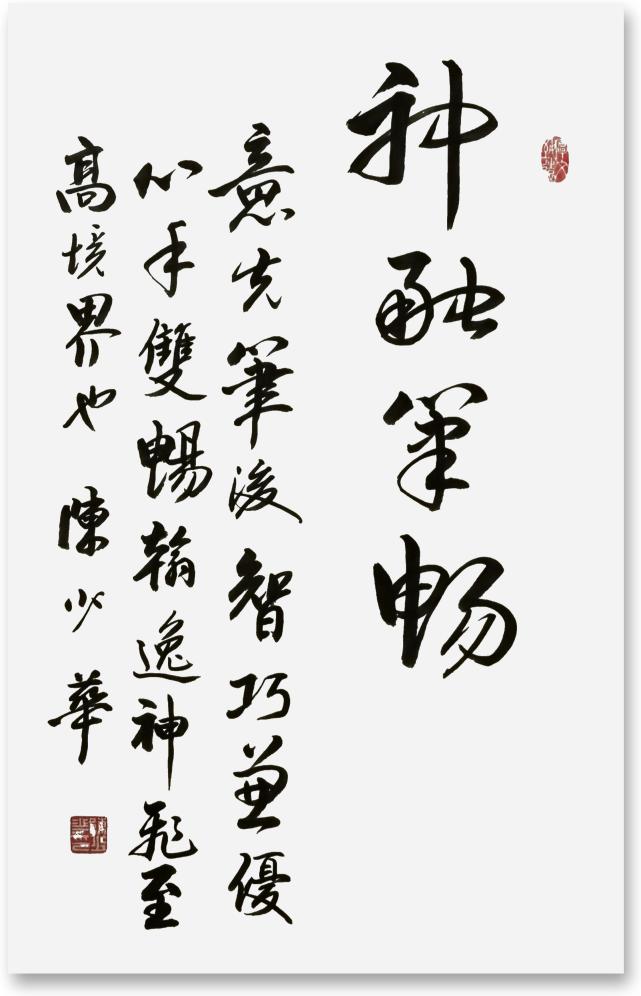 神融筆畅
意先筆後智巧兼優
心手雙暢翰逸神飛至
高境界也 陳少華